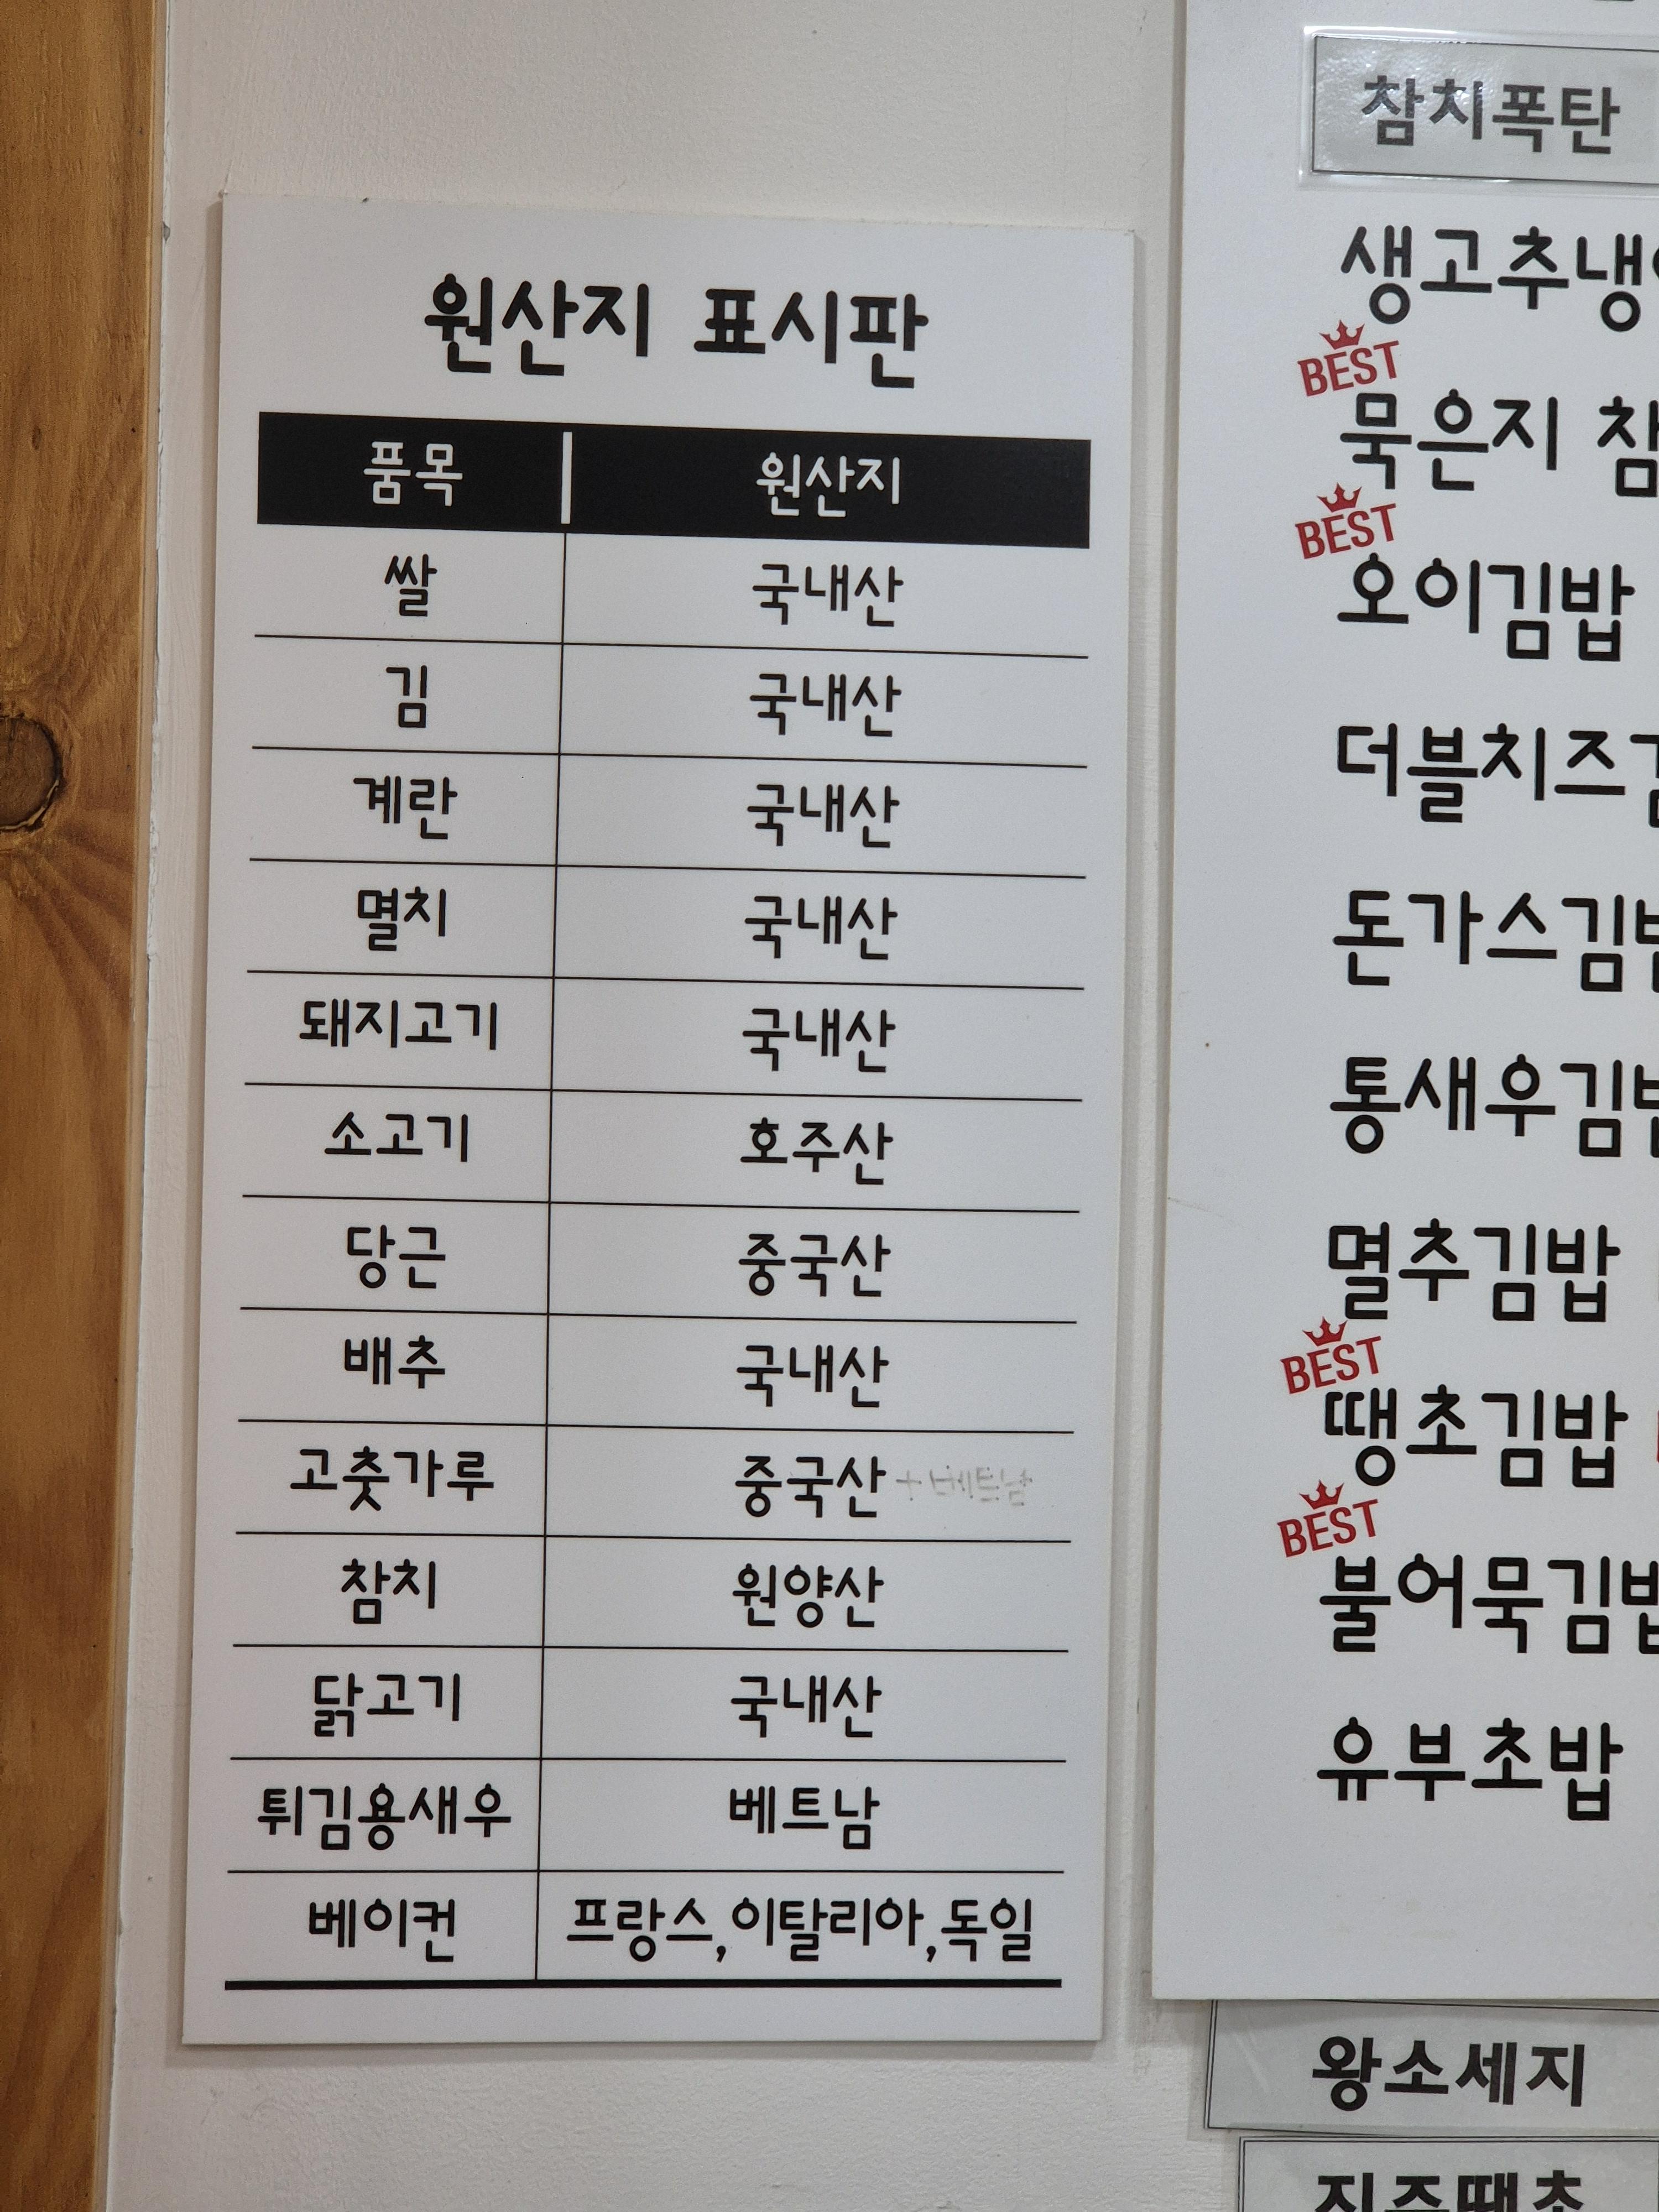 원산지 표시판
품목 원산지
쌀 국내산
김 국내산
계란 국내산
멸치 국내산
돼지고기 국내산
소고기 호주산
당근 중국산
배추 국내산
고춧가루 중국산 + 베트남
참치 원양산
닭고기 국내산
튀김용새우 베트남
베이컨 프랑스,이탈리아,독일
참치폭탄
생고추냉
BEST
묵은지 참
BEST
오이김밥
더블치즈
돈가스김
통새우김
멸추김밥
BEST
땡초김밥
BEST
불어묵김밥
유부초밥
왕소세지